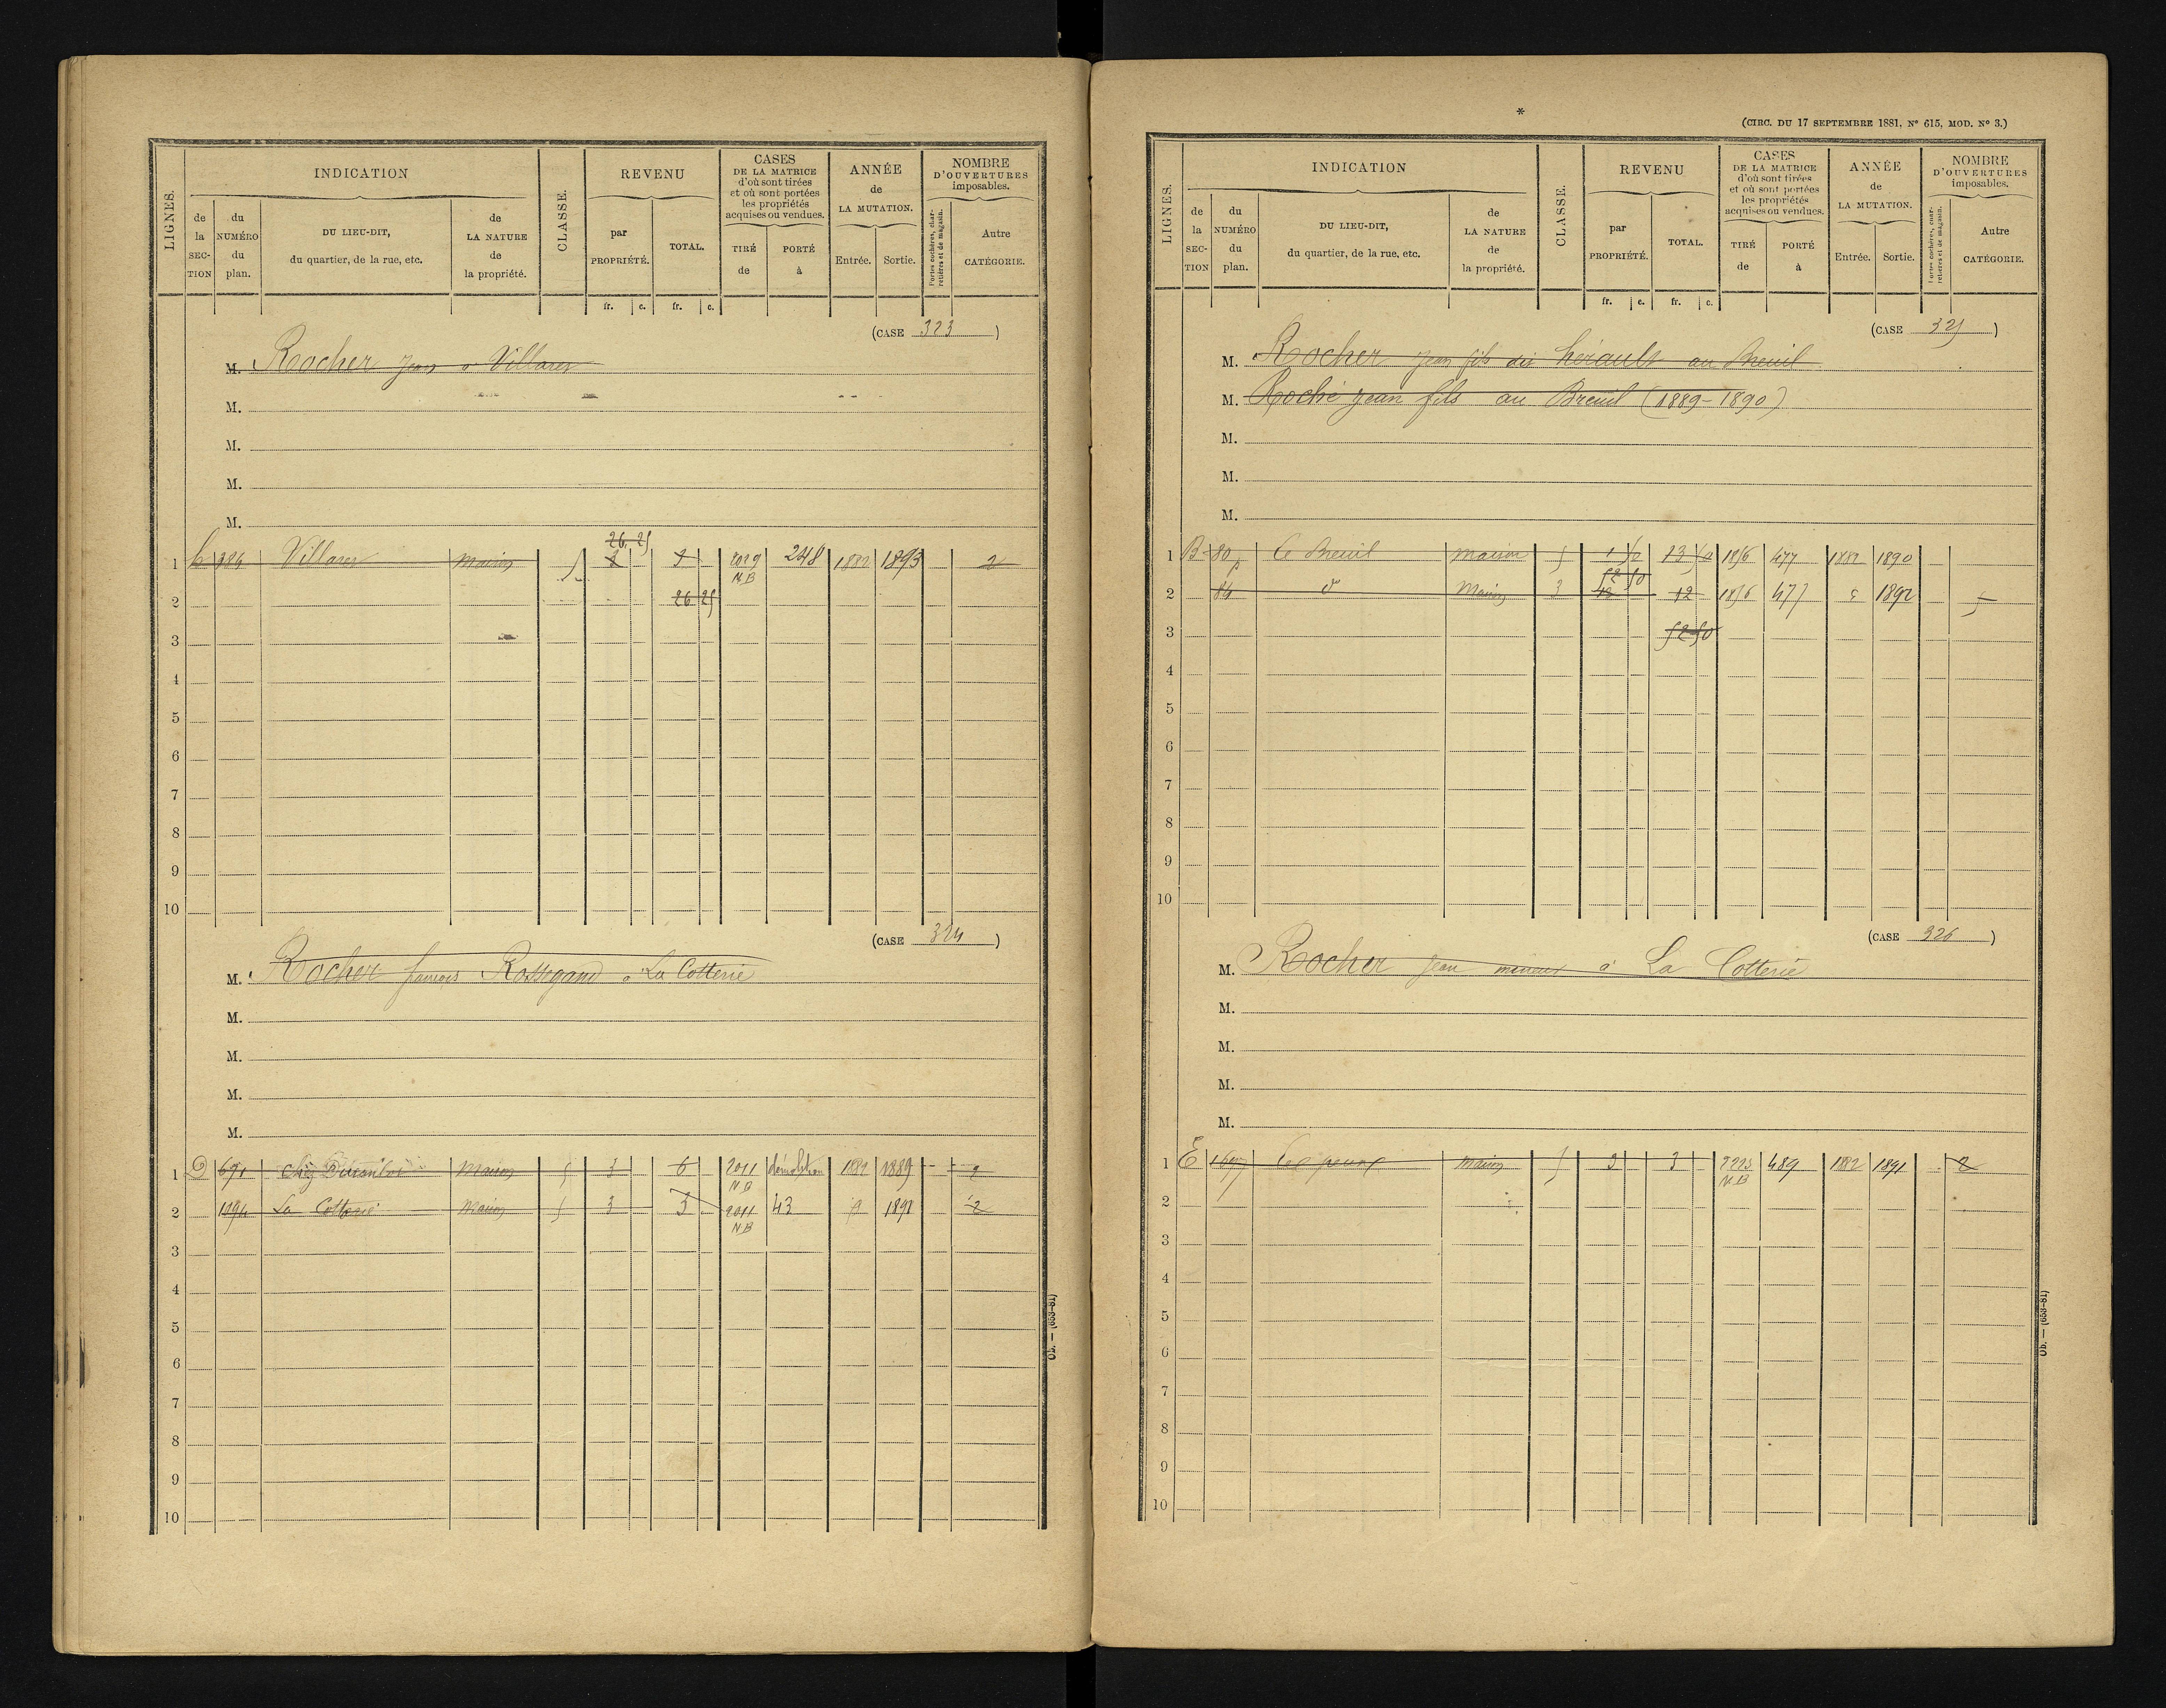 LIGNES.
INDICATION
de la SECTION
du NUMÉRO du plan.
DU LIEU-DIT, du quartier, de la rue, etc.
de LA NATURE de la propriété.
CLASSE.
REVENU
par PROPRIÉTÉ.
TOTAL.
fr. c. fr. c.
CASES DE LA MATRICE d'où sont tirées et où sont portées les propriétés acquises ou vendues.
TIRÉ de
PORTÉ à
ANNÉE de LA MUTATION.
Entrée. Sortie.
NOMBRE D'OUVERTURES imposables.
Portes cochères, charretières et de magasin.
Autre CATÉGORIE.
(CASE 323)
M. Rocher Jean à Villarer
M.
M.
M.
M.
26 25
1 Villarer Maison 5 2029 248 1882 1893 2
NB
2 26 25
3
4
5
6
7
8
9
10
(CASE 324)
M. Rocher françois Rossegand à La Cotterie
M.
M.
M.
M.
1 D 691 Chez Maison 5 3 6 2011 démolition 1882 1889 2
NB
2 1094 La Cotterie Maison 5 3 3 2011 43 1892 2
NB
3
4
5
6
7
8
9
10
Ob. — (653-81)
*
(CIRC. DU 17 SEPTEMBRE 1881, N° 615, MOD. N° 3.)
LIGNES.
INDICATION
de la SECTION
du NUMÉRO du plan.
DU LIEU-DIT, du quartier, de la rue, etc.
de LA NATURE de la propriété.
CLASSE.
REVENU
par PROPRIÉTÉ.
TOTAL.
fr. c. fr. c.
CASES DE LA MATRICE d'où sont tirées et où sont portées les propriétés acquises ou vendues.
TIRÉ de
PORTÉ à
ANNÉE de LA MUTATION.
Entrée. Sortie.
NOMBRE D'OUVERTURES imposables.
Portes cochères, charretières et de magasin.
Autre CATÉGORIE.
(CASE 325)
M. Rocher Jean fils dit hérault au Breuil
M. Roche Jean fils au Breuil (1889-1890)
M.
M.
M.
1 B 80 Le Breuil maison 5 1 50 13 50 1856 477 1882 1890
52 50
2 84 d° Maison 3 12 12 1856 477 1892 5
3 52 50
4
5
6
7
8
9
10
(CASE 326)
M. Rocher Jean mineur à La Cotterie
M.
M.
M.
M.
1 E maison 5 3 3 489 1882 1891 2
NB
2
3
4
5
6
7
8
9
10
Ob. — (653-81)